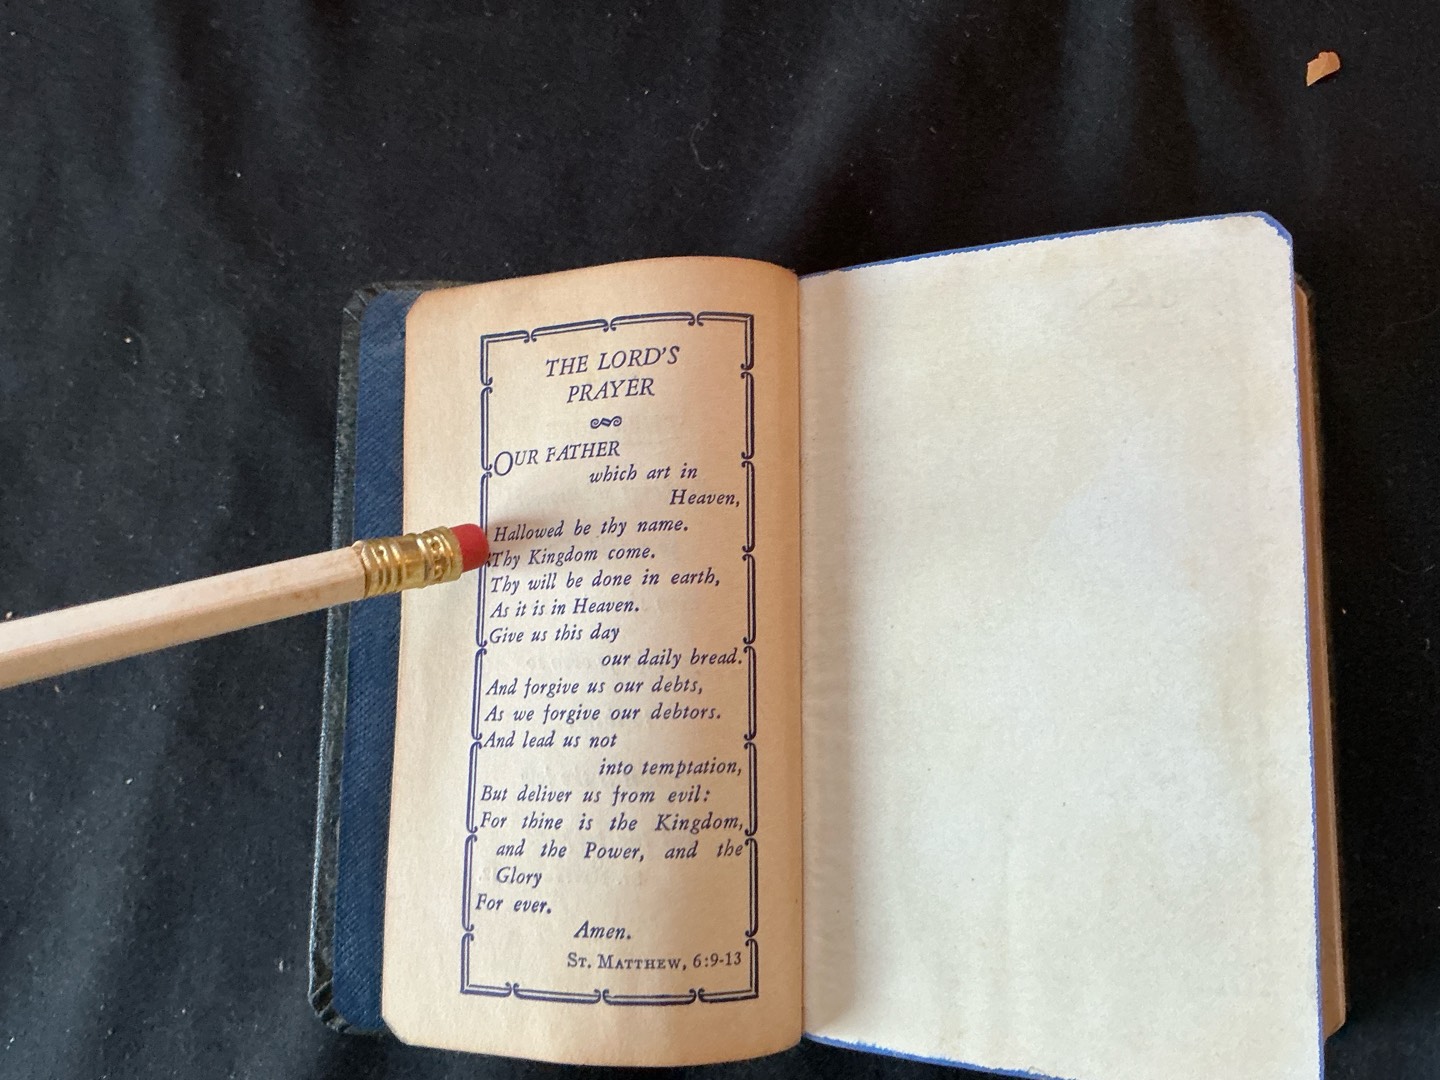 THE LORD'S
PRAYER
OUR FATHER
which art in
Heaven,
Hallowed be thy name.
Thy Kingdom come.
Thy will be done in earth,
As it is in Heaven.
Give us this day
our daily bread.
And forgive us our debts,
As we forgive our debtors.
And lead us not
into temptation,
But deliver us from evil:
For thine is the Kingdom,
and the Power, and the
Glory
For ever.
Amen.
ST. MATTHEW, 6:9-13